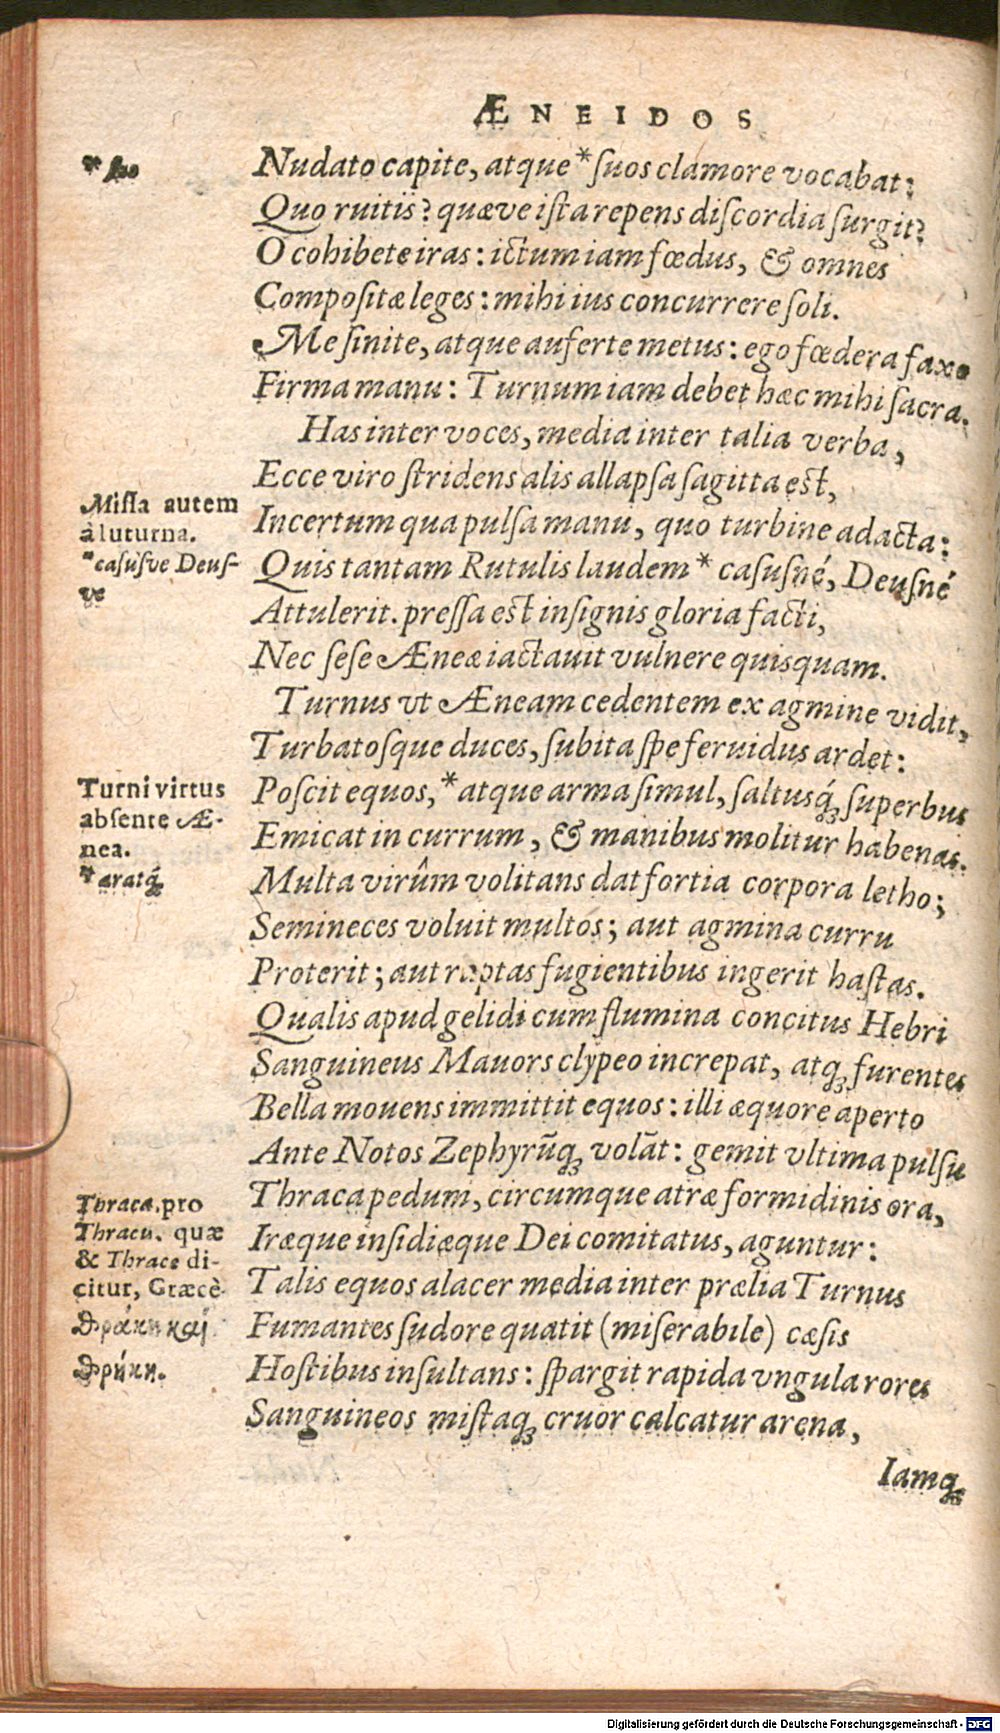 ÆNEIDOS
Nudato capite, atque * ſuos clamore vocabat:
Quo ruitis? quæve iſta repens diſcordia ſurgit?
O cohibete iras: ictum iam fœdus, & omnes
Compoſitæ leges: mihi ius concurrere ſoli.
Me ſinite, atque auferte metus: ego fœdera faxo
Firma manu: Turnum iam debet hæc mihi ſacra.
Has inter voces, media inter talia verba,
Ecce viro ſtridens alis allapſa ſagitta eſt,
Incertum qua pulſa manu, quo turbine adacta:
Quis tantam Rutulis laudem * caſuſné, Deuſné
Attulerit. preſſa eſt inſignis gloria facti,
Nec ſeſe Æneæ iactauit vulnere quisquam.
Turnus vt Æneam cedentem ex agmine vidit,
Turbatoſque duces, ſubita ſpe feruidus ardet:
Poſcit equos, * atque arma ſimul, ſaltuſq́ꝫ ſuperbus
Emicat in currum, & manibus molitur habenas.
Multa virûm volitans dat fortia corpora letho;
Semineces voluit multos; aut agmina curru
Proterit; aut raptas fugientibus ingerit haſtas.
Qualis apud gelidi cum flumina concitus Hebri
Sanguineus Mauors clypeo increpat, atqꝫ furentes
Bella mouens immittit equos: illi æquore aperto
Ante Notos Zephyrũqꝫ volãt: gemit vltima pulſu
Thraca pedum, circumque atræ formidinis ora,
Iræque inſidiæque Dei comitatus, aguntur:
Talis equos alacer media inter prælia Turnus
Fumantes ſudore quatit (miſerabile) cæſis
Hoſtibus inſultans: ſpargit rapida vngula rores
Sanguineos miſtaqꝫ cruor calcatur arena,
Iamqꝫ
Miſſa autem
à Iuturna.
* caſuſve Deuſ-
ve
Turni virtus
abſente Æ-
nea.
* aratq́ꝫ
Thraca, pro
Thracia. quæ
& Thrace di-
citur, Græcè
Θράκη καὶ
Θρήκη.
Digitalisierung gefördert durch die Deutsche Forschungsgemeinschaft - DFG